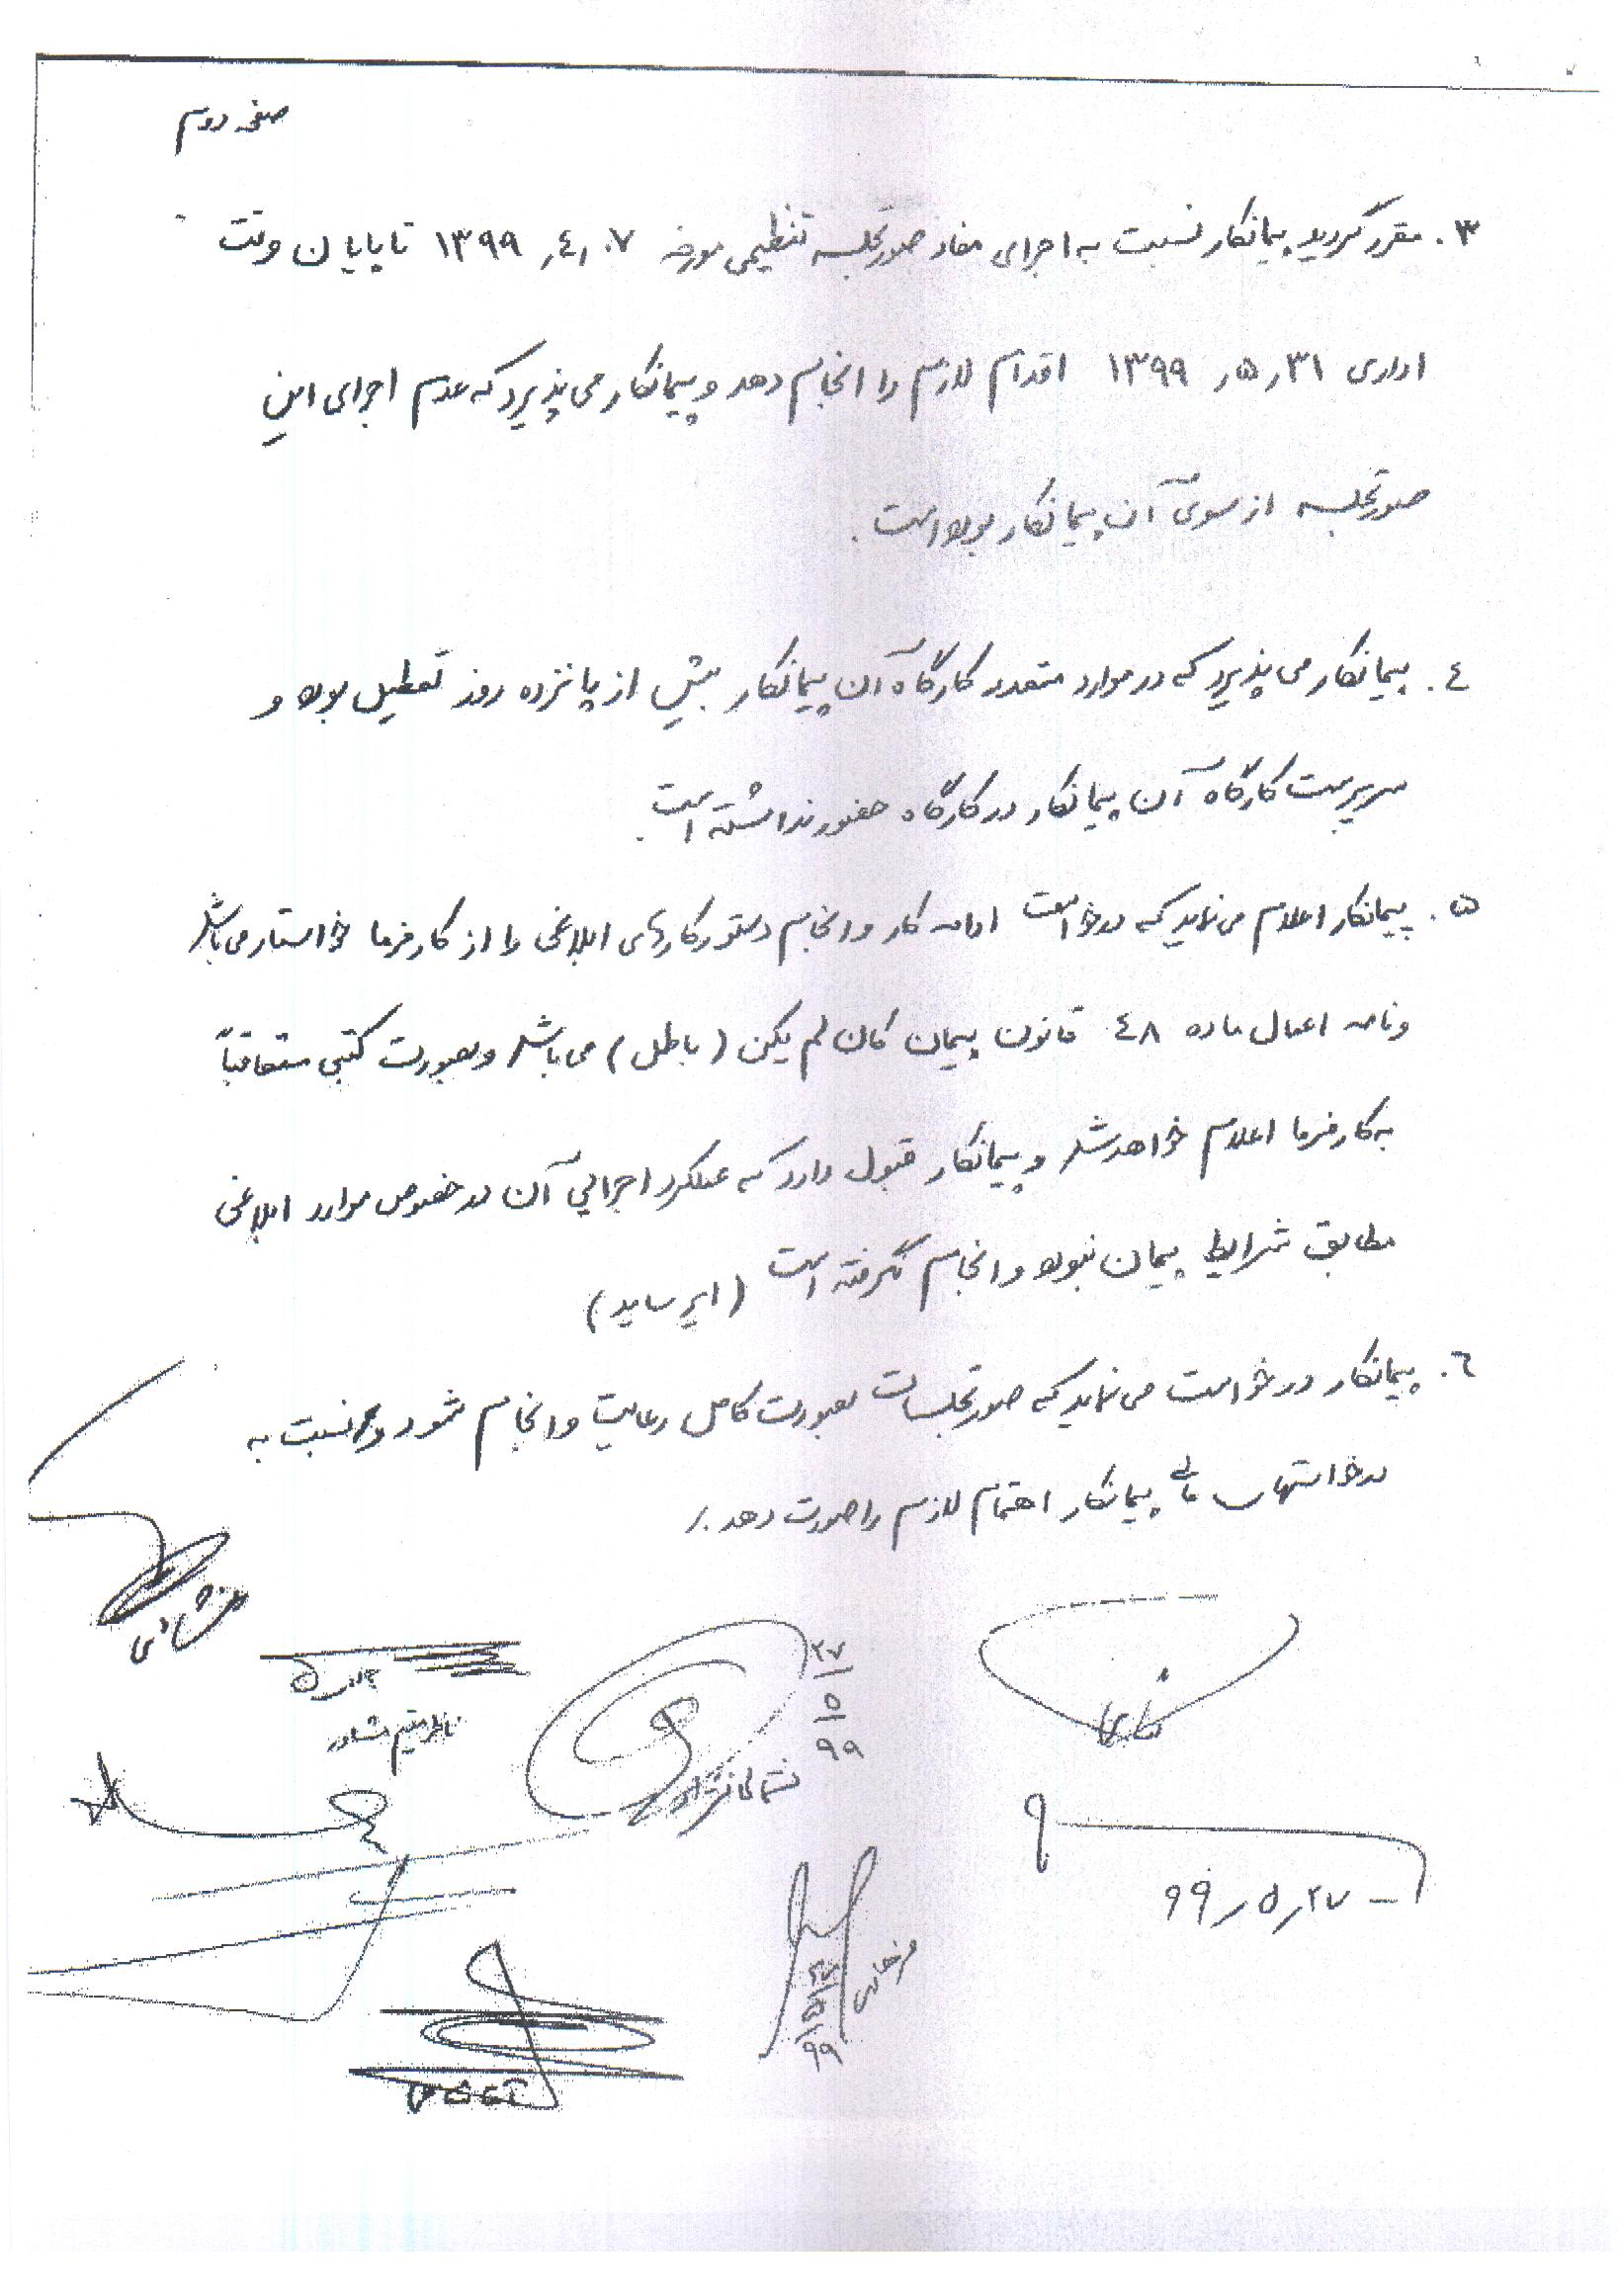 صفحه دوم
۳. مقرر گردید پیمانکار نسبت به اجرای مفاد صورتجلسه تنظیمی مورخه ۱۳۹۹٫۴٫۰۷ تا پایان وقت
اداری ۱۳۹۹٫۵٫۳۱ اقدام لازم را انجام دهد و پیمانکار می پذیرد که عدم اجرای این
صورتجلسه از سوی آن پیمانکار بوده است.
۴. پیمانکار می پذیرد که در موارد متعدد کارگاه آن پیمانکار بیش از پانزده روز تعطیل بوده و
سرپرست کارگاه آن پیمانکار در کارگاه حضور نداشته است.
۵. پیمانکار اعلام می نماید که درخواست ادامه کار و انجام دستور کارهای ابلاغی را از کارفرما خواستار می باشد
و نامه اعمال ماده ۴۸ قانون پیمان کان لم یکن (باطل) می باشد و بصورت کتبی متعاقباً
به کارفرما اعلام خواهد شد و پیمانکار قبول دارد که عملکرد اجرایی آن در خصوص موارد ابلاغی
مطابق شرایط پیمان نبوده و انجام نگرفته است (ایرساید)
۶. پیمانکار درخواست می نماید که صورتجلسات بصورت کامل رعایت و انجام شود و نسبت به
درخواستهای مالی پیمانکار اهتمام لازم را صورت دهد./
ناظر مقیم مشاور
۲۷/۵/۹۹
۹۹٫۵٫۲۷
۲۷/۵/۹۹